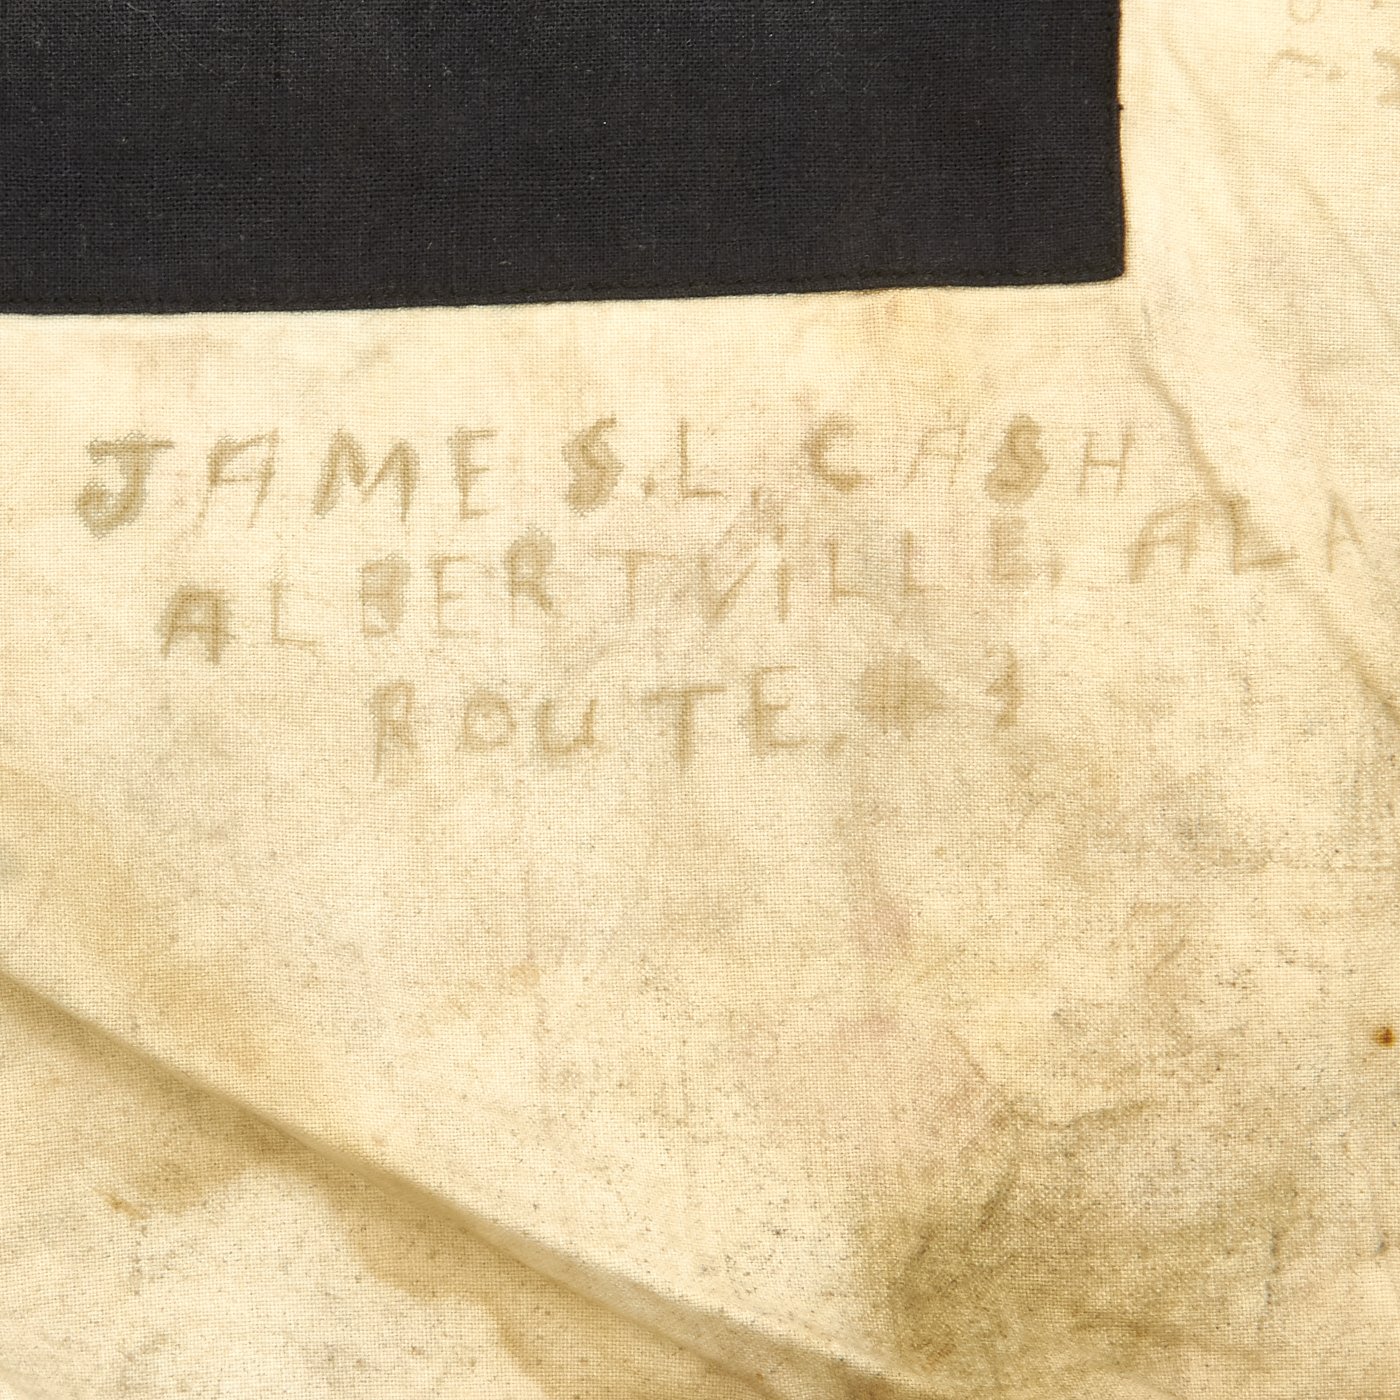 JAMES.L. CASH
ALBERTVILLE, ALA
ROUTE, # 1